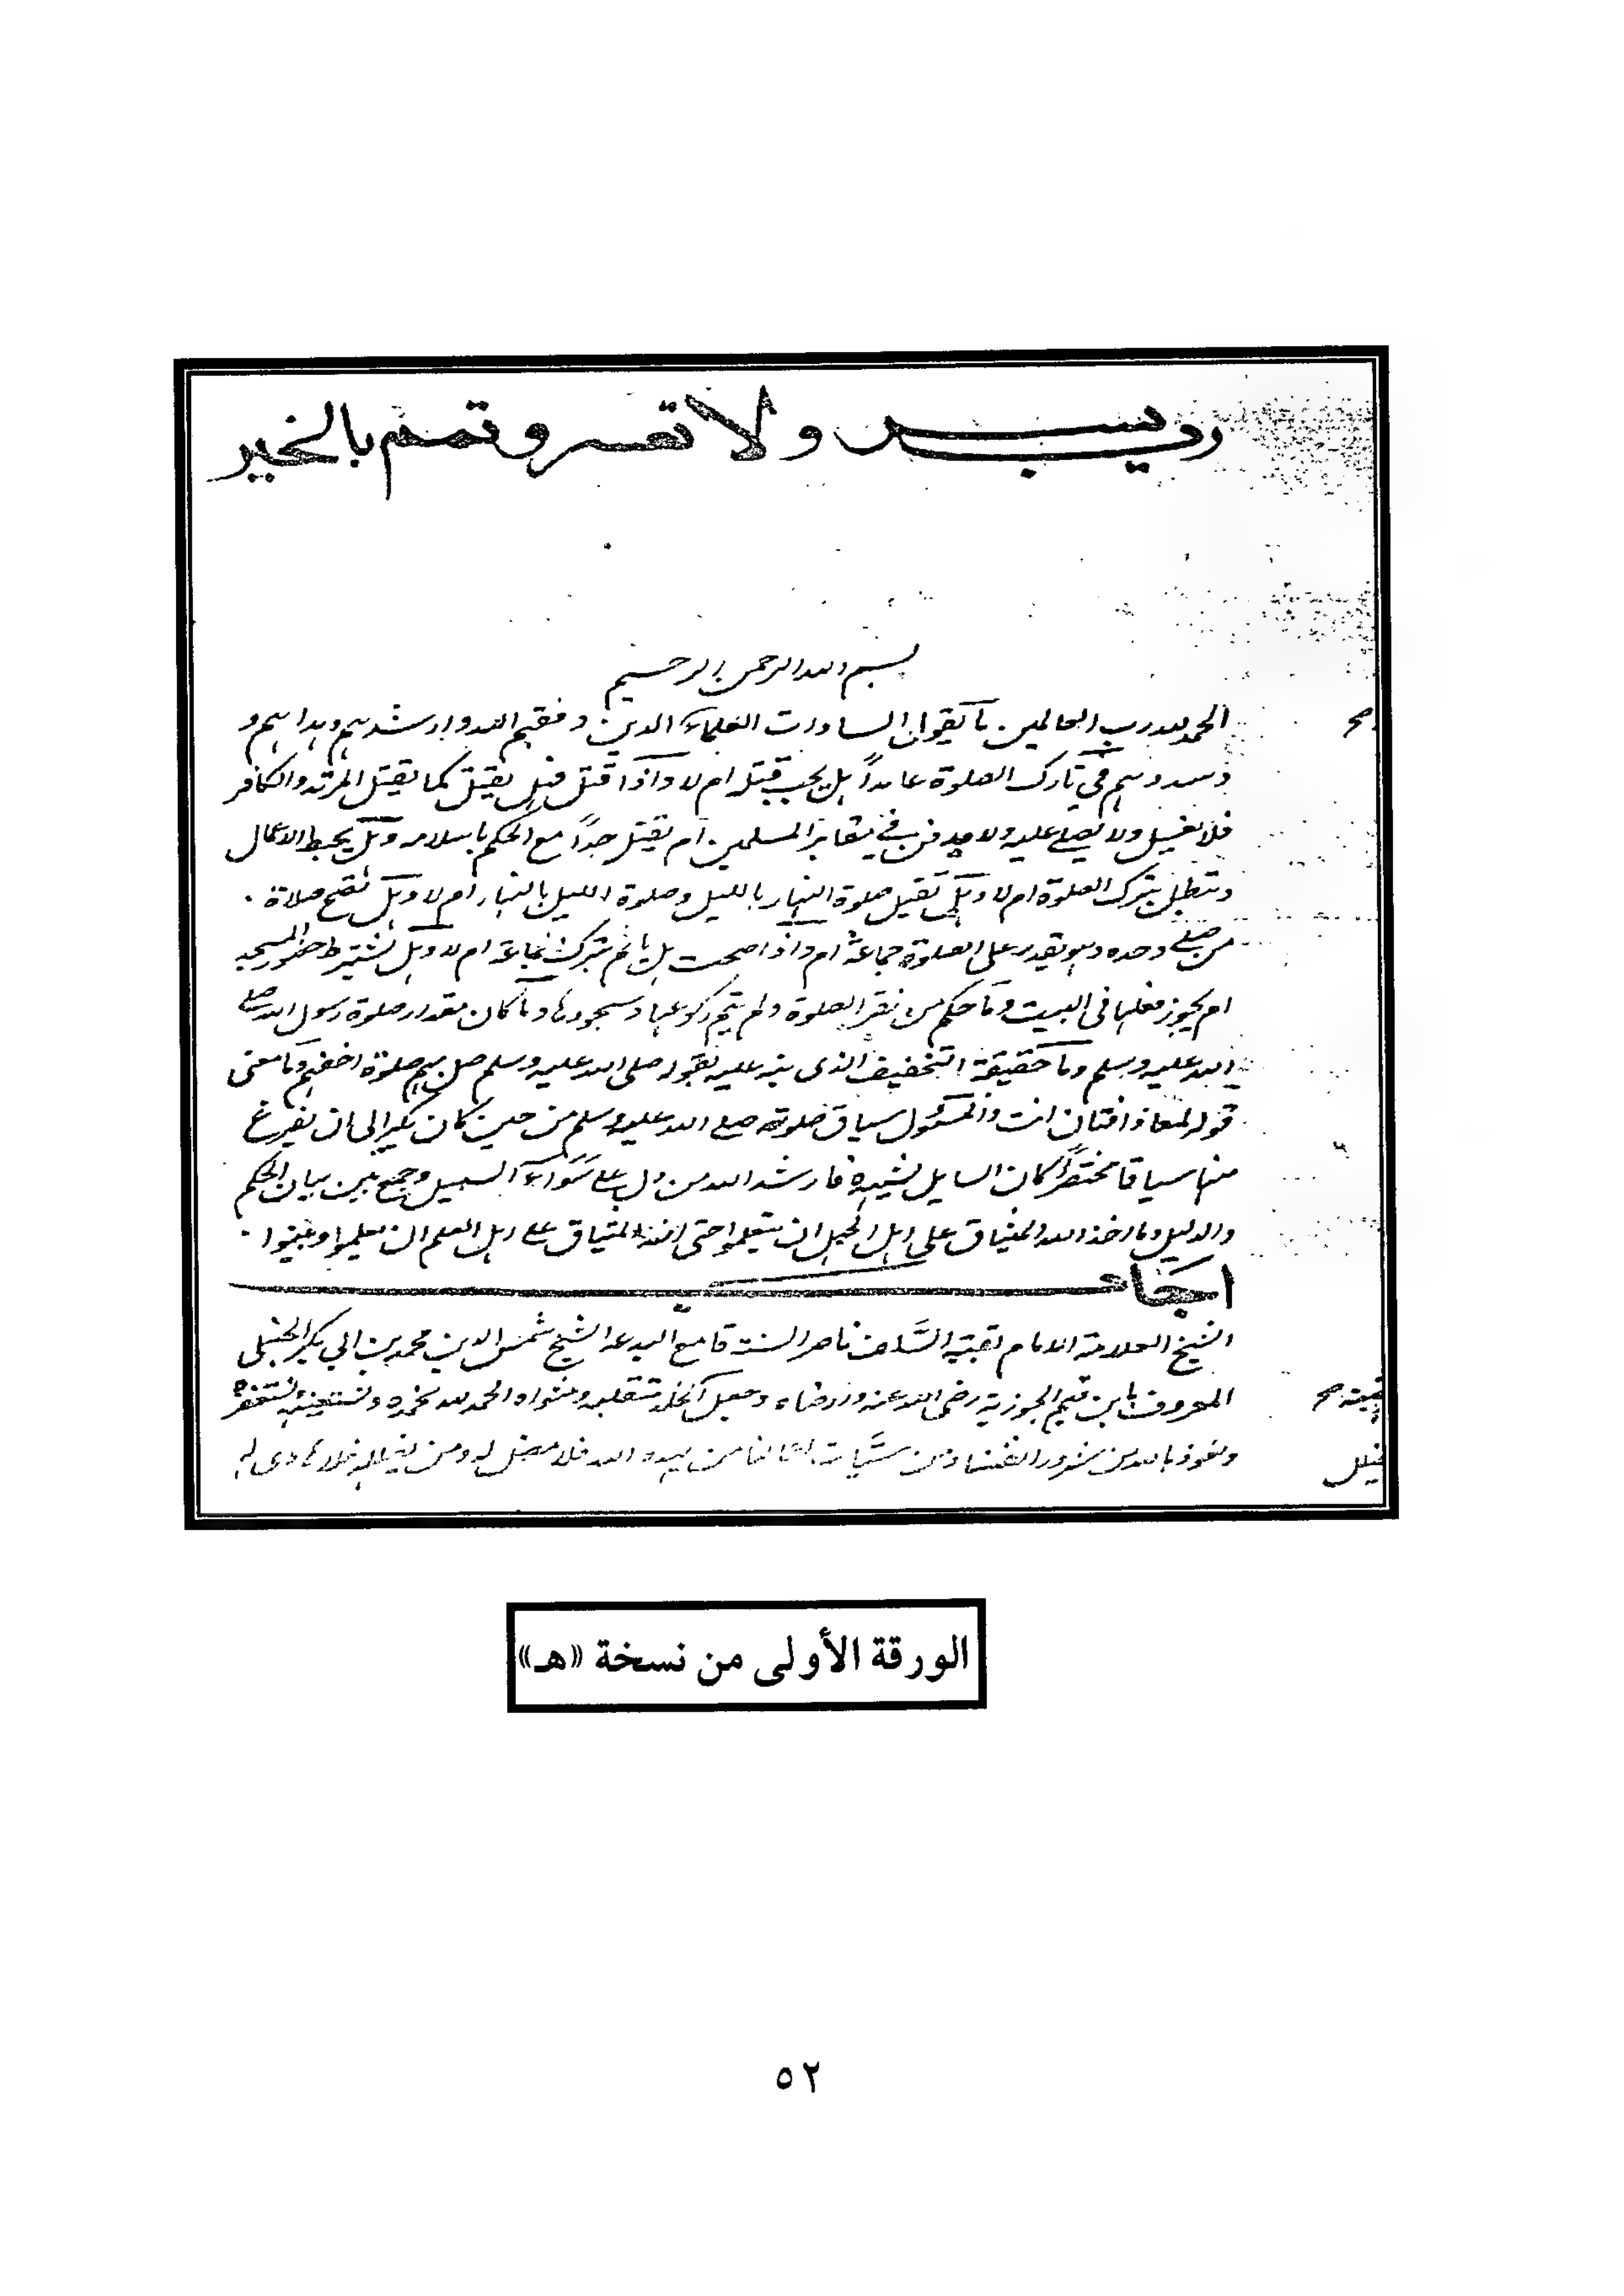 رب يسر ولا تعسر وتمم بالخير
بسم الله الرحمن الرحيم
الحمد لله رب العالمين ما يقول السادات العلماء الذين وفقهم الله وارشدهم وهداهم و
صح
وسددهم في تارك الصلوة عامداً هل يجب قتله ام لا واذا قتل فهل يقتل كما يقتل المرتد والكافر
فلا يغسل ولا يصلى عليه ولا يدفن في مقابر المسلمين ام يقتل حداً مع الحكم باسلامه وهل يحبط الاعمال
وتبطل بترك الصلوة ام لا وهل تقبل صلوة النهار بالليل وصلوة الليل بالنهار ام لا وهل تصح صلاة
من صلى وحده وهو يقدر على الصلوة جماعة ام واذا صحت هل ياثم بترك الجماعة ام لا وهل يشترط حضور المسجد
ام يجوز فعلها فى البيت وما حكم من نقر الصلوة ولم يتم ركوعها وسجودها وما كان مقدار صلوة رسول الله صلى
الله عليه وسلم وما حقيقة التخفيف الذى نبه عليه بقوله صلى الله عليه وسلم صل بهم صلوة اخفهم وما معنى
قوله لمعاذ افتان انت والمسئول سياق صلوته صلى الله عليه وسلم من حين كان يكبر الى ان يفرغ
منها سياقا مختصراً كان السايل يشهده فارشد الله من دل على سواء السبيل وجمع بين بيان الحكم
والدليل وما اخذ الله الميثاق على اهل الجهل ان يتعلموا حتى اخذ الميثاق على اهل العلم ان يعلموا ويبينوا
اجاب
الشيخ العلامة الامام بقية السلف ناصر السنة قامع البدعة الشيخ شمس الدين محمد بن ابي بكر الحنبلي
المعروف بابن قيم الجوزية رضى الله عنه وارضاه وجعل الجنة منقلبه ومثواه الحمد لله نحمده ونستعينه ونستغفره
ونعوذ بالله من شرور انفسنا ومن سيئات اعمالنا من يهده الله فلا مضل له ومن يضلل فلا هادى له
الورقة الأولى من نسخة «هـ»
٥٢